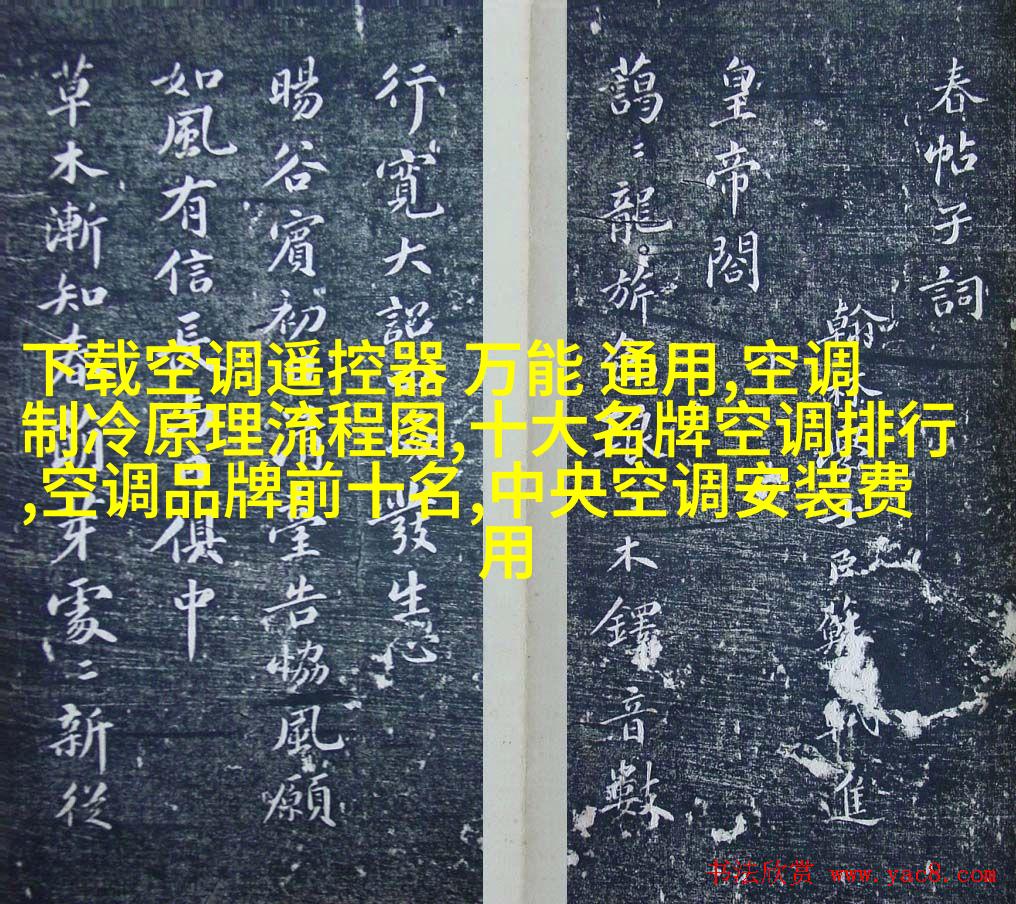 春帖子詞
翰林 臣蘇軾進
皇帝閤
藹〻龍旂色 木鐸音數
行寬大詔 發生心
暘谷賓初 清臺告協風願
如風有信長與 俱中
草木漸知春 芽處〻新從
下载空调遥控器 万能 通用,空调
制冷原理流程图,十大名牌空调排行
,空调品牌前十名,中央空调安装费
用
书法欣赏 www.yac8.com